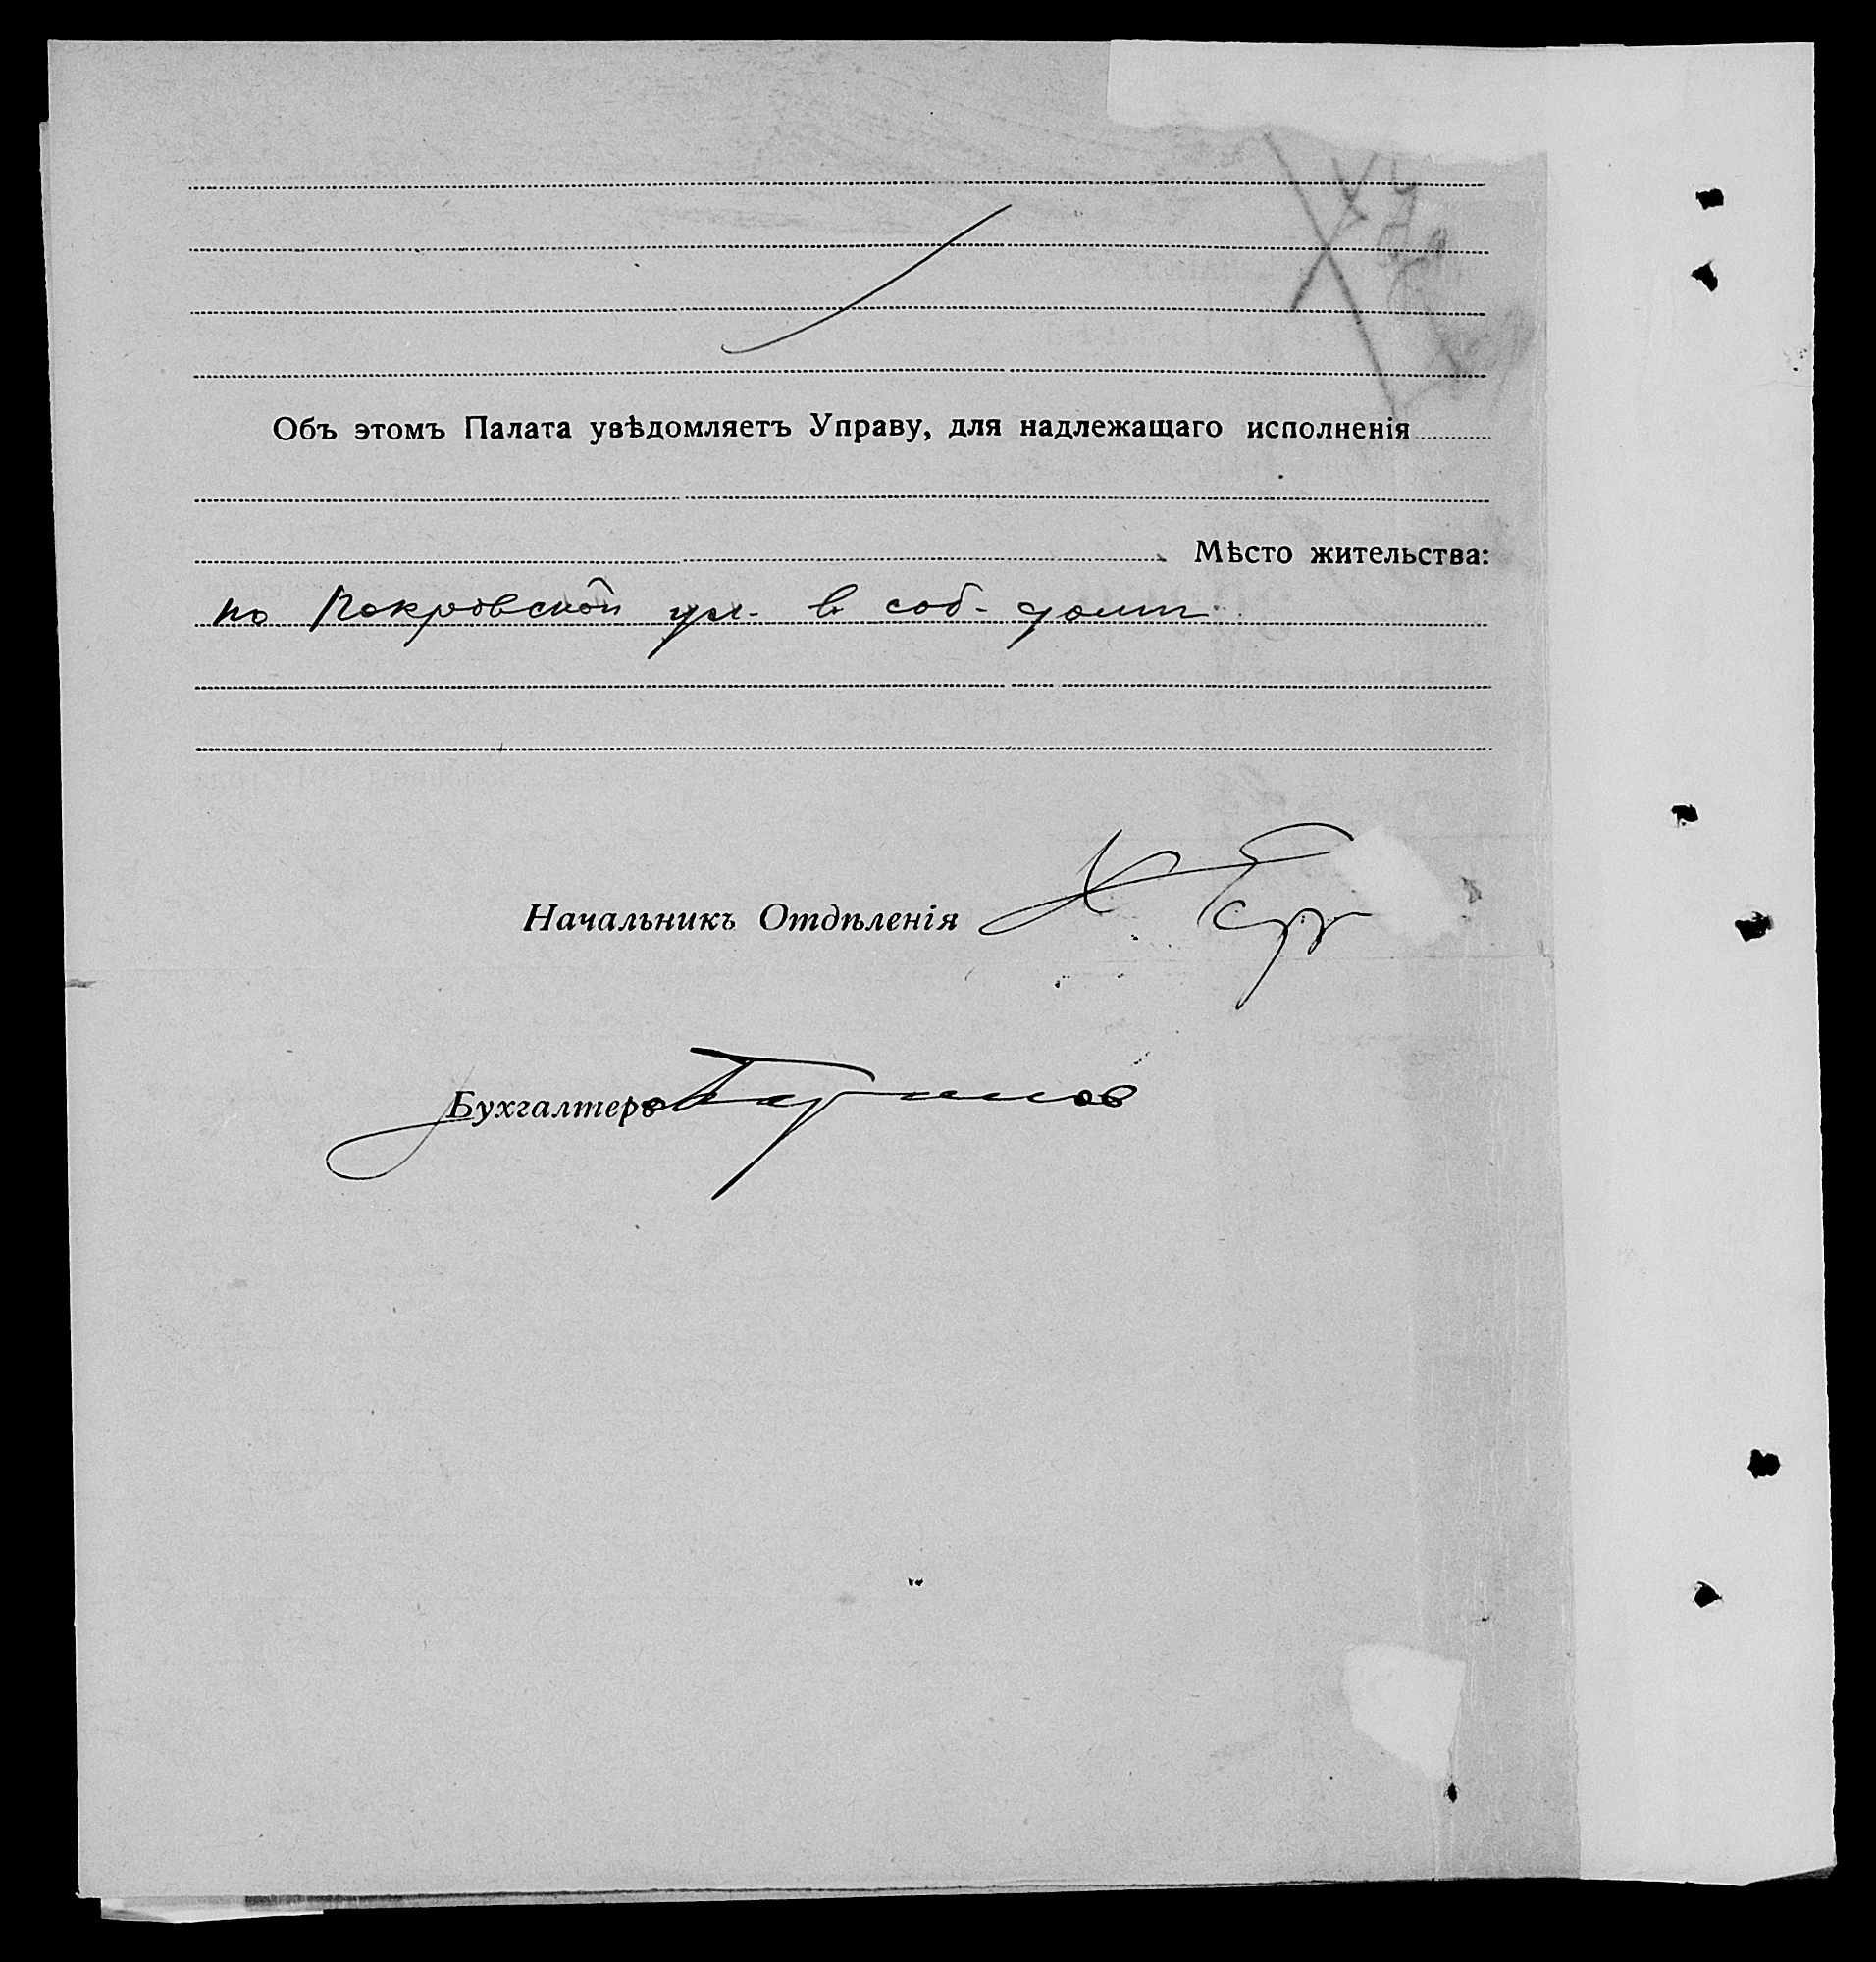 Объ этомъ Палата увѣдомляетъ Управу, для надлежащаго исполненія
Мѣсто жительства:
по Покровской ул. в соб. домѣ
Начальникъ Отдѣленія
Бухгалтеръ